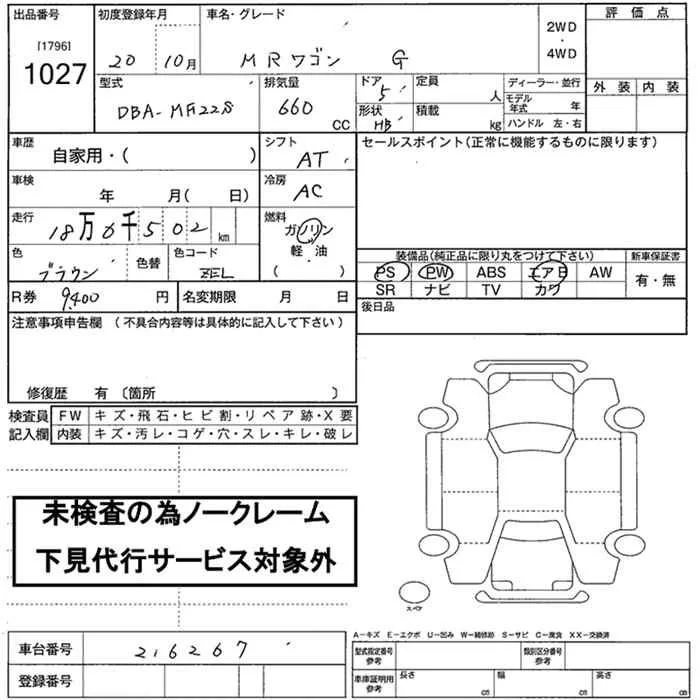 出品番号 初度登録年月 車名・グレード 評価点
[1796]
1027
20 10月 MRワゴン G
2WD
・
4WD
型式 排気量 ドア 定員 ディーラー・並行 外装 内装
DBA-MF22S 660 CC 5 人 モデル年式 年
形状 HB 積載 kg ハンドル 左・右
車歴 シフト セールスポイント(正常に機能するものに限ります)
自家用・( ) AT
車検 冷房
年 月( 日) AC
走行 燃料
18万6千502km ガソリン
軽・油
・
( )
色 色替 色コード 装備品(純正品に限り丸をつけて下さい) 新車保証書
ブラウン ZEL PS PW ABS エアB AW 有・無
SR ナビ TV カワ
R券 9,400円 名変期限 月 日 後日品
注意事項申告欄 (不具合内容等は具体的に記入して下さい)
修復歴 有〔箇所 〕
検査員 FW キズ・飛石・ヒビ割・リペア跡・X要
記入欄 内装 キズ・汚レ・コゲ・穴・スレ・キレ・破レ
未検査の為ノークレーム
下見代行サービス対象外
スペア
A-キズ E-エクボ U-凹み W-補修跡 S-サビ C-腐食 XX-交換済
車台番号 216267 型式指定番号参考 類別区分番号参考
登録番号 車庫証明用参考 長さ cm 幅 cm 高さ cm